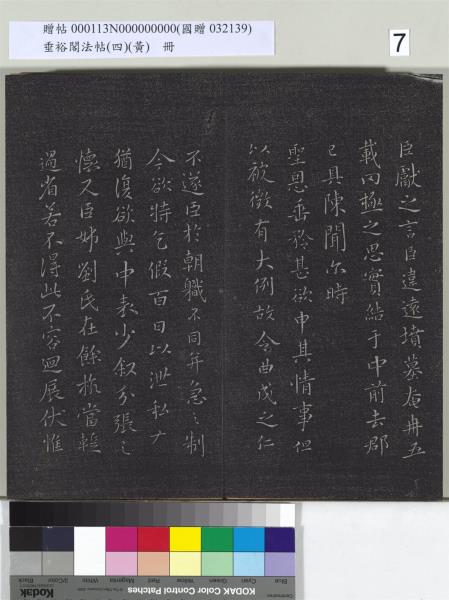 贈帖 000113N000000000(國贈 032139)
垂裕閣法帖(四)(黃) 冊
7
臣獻之言臣違遠墳墓奄冉五
載罔極之思實結于中前去郡
已具陳聞尔時
聖恩垂矜甚欲申其情事但
以被徵有大例故令曲成之仁
不遂臣於朝職不同并急之制
今欲特乞假百日以泄私
猶復欲與中表少敘分張之
懷又臣姊劉氏在餘杭當輒
過省若不得此不容迴展伏惟
Blue
Cyan
Green
Yellow
Red
Magenta
White
3/Color
Black
KODAK Color Control Patches
Kodak